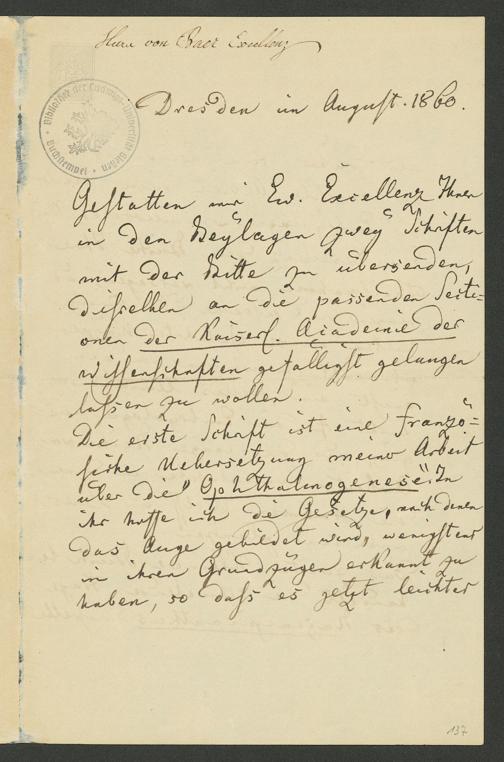 Herrn von Baer Excellenz
Dresden im August. 1860.
Gestatten mir Ew. Excellenz Ihnen
in den Beylagen zwey Schriften
mit der Bitte zu übersenden,
dieselben an die passenden Secti=
onen der Kaiserl. Academie der
Wissenschaften gefälligst gelangen
lassen zu wollen.
Die erste Schrift ist eine franzö=
sische Uebersetzung meiner Arbeit
über die "Ophthalmogenese". In
ihr hoffe ich die Gesetze, nach denen
das Auge gebildet wird, wenigstens
in ihren Grundzügen erkannt zu
haben, so daß es jetzt leichter
137